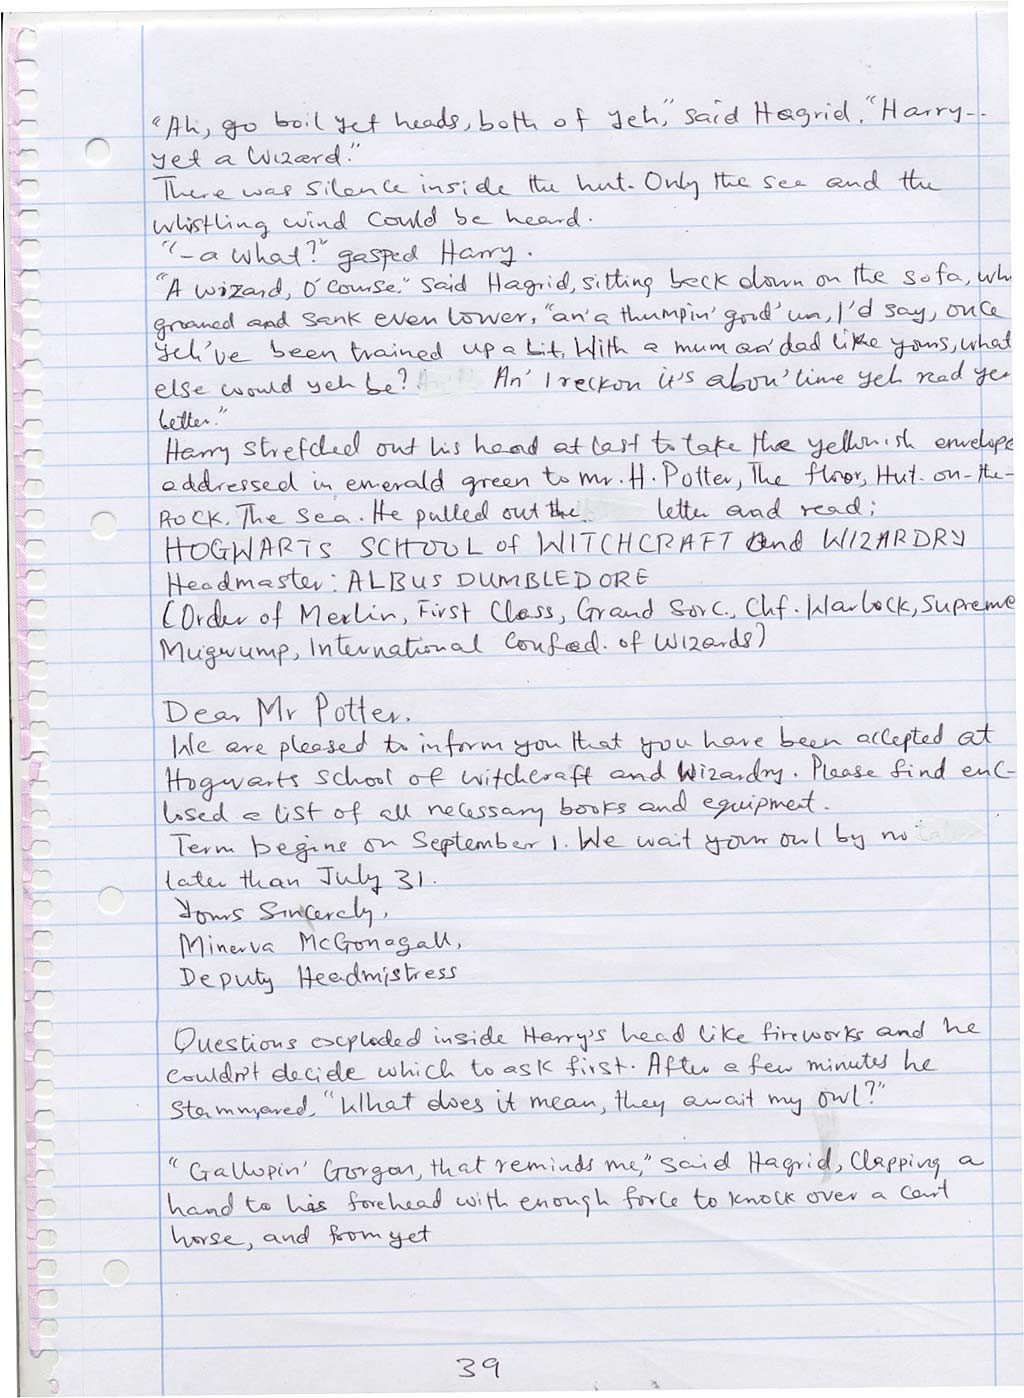 "Ah, go boil yet heads, both of yeh," said Hagrid. "Harry--
yet a wizard."
There was silence inside the hut. Only the sea and the
whistling wind could be heard.
"-a what?" gasped Harry.
"A wizard, O'course." said Hagrid, sitting back down on the sofa, wh
groaned and sank even lower, "an'a thumpin' good'un, I'd say, once
yeh've been trained up a bit. With a mum an'dad like yours, what
else would yeh be? An' I reckon it's abou'time yeh read yer
letter."
Harry stretched out his hand at last to take the yellowish envelope
addressed in emerald green to Mr. H. Potter, The floor, Hut-on-the-
Rock, The Sea. He pulled out the letter and read;
HOGWARTS SCHOOL of WITCHCRAFT and WIZARDRY
Headmaster: ALBUS DUMBLEDORE
(Order of Merlin, First Class, Grand Sorc., Chf. Warlock, Supreme
Mugwump, International Confed. of Wizards)
Dear Mr Potter.
We are pleased to inform you that you have been accepted at
Hogwarts School of Witchcraft and Wizardry. Please find enc-
losed a list of all necessary books and equipment.
Term begins on September 1. We wait your owl by no
later than July 31.
Yours Sincerely,
Minerva McGonagall,
Deputy Headmistress
Questions exploded inside Harry's head like fireworks and he
couldn't decide which to ask first. After a few minutes he
stammered, "What does it mean, they await my owl?"
"Gallopin' Gorgon, that reminds me," said Hagrid, Clapping a
hand to his forehead with enough force to knock over a cart
horse, and from yet
39